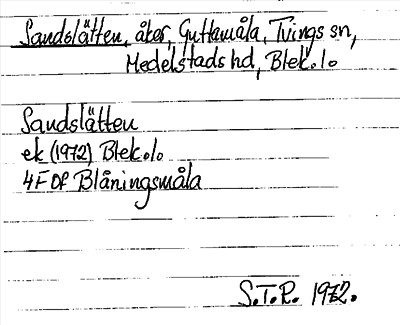 Sandslätten, åker, Guttamåla, Tvings sn,
Medelstads hd, Blek.l.
Sandslätten
ek (1972) Blek.l.
4F 0f Blåningsmåla
S.T.R. 1972.